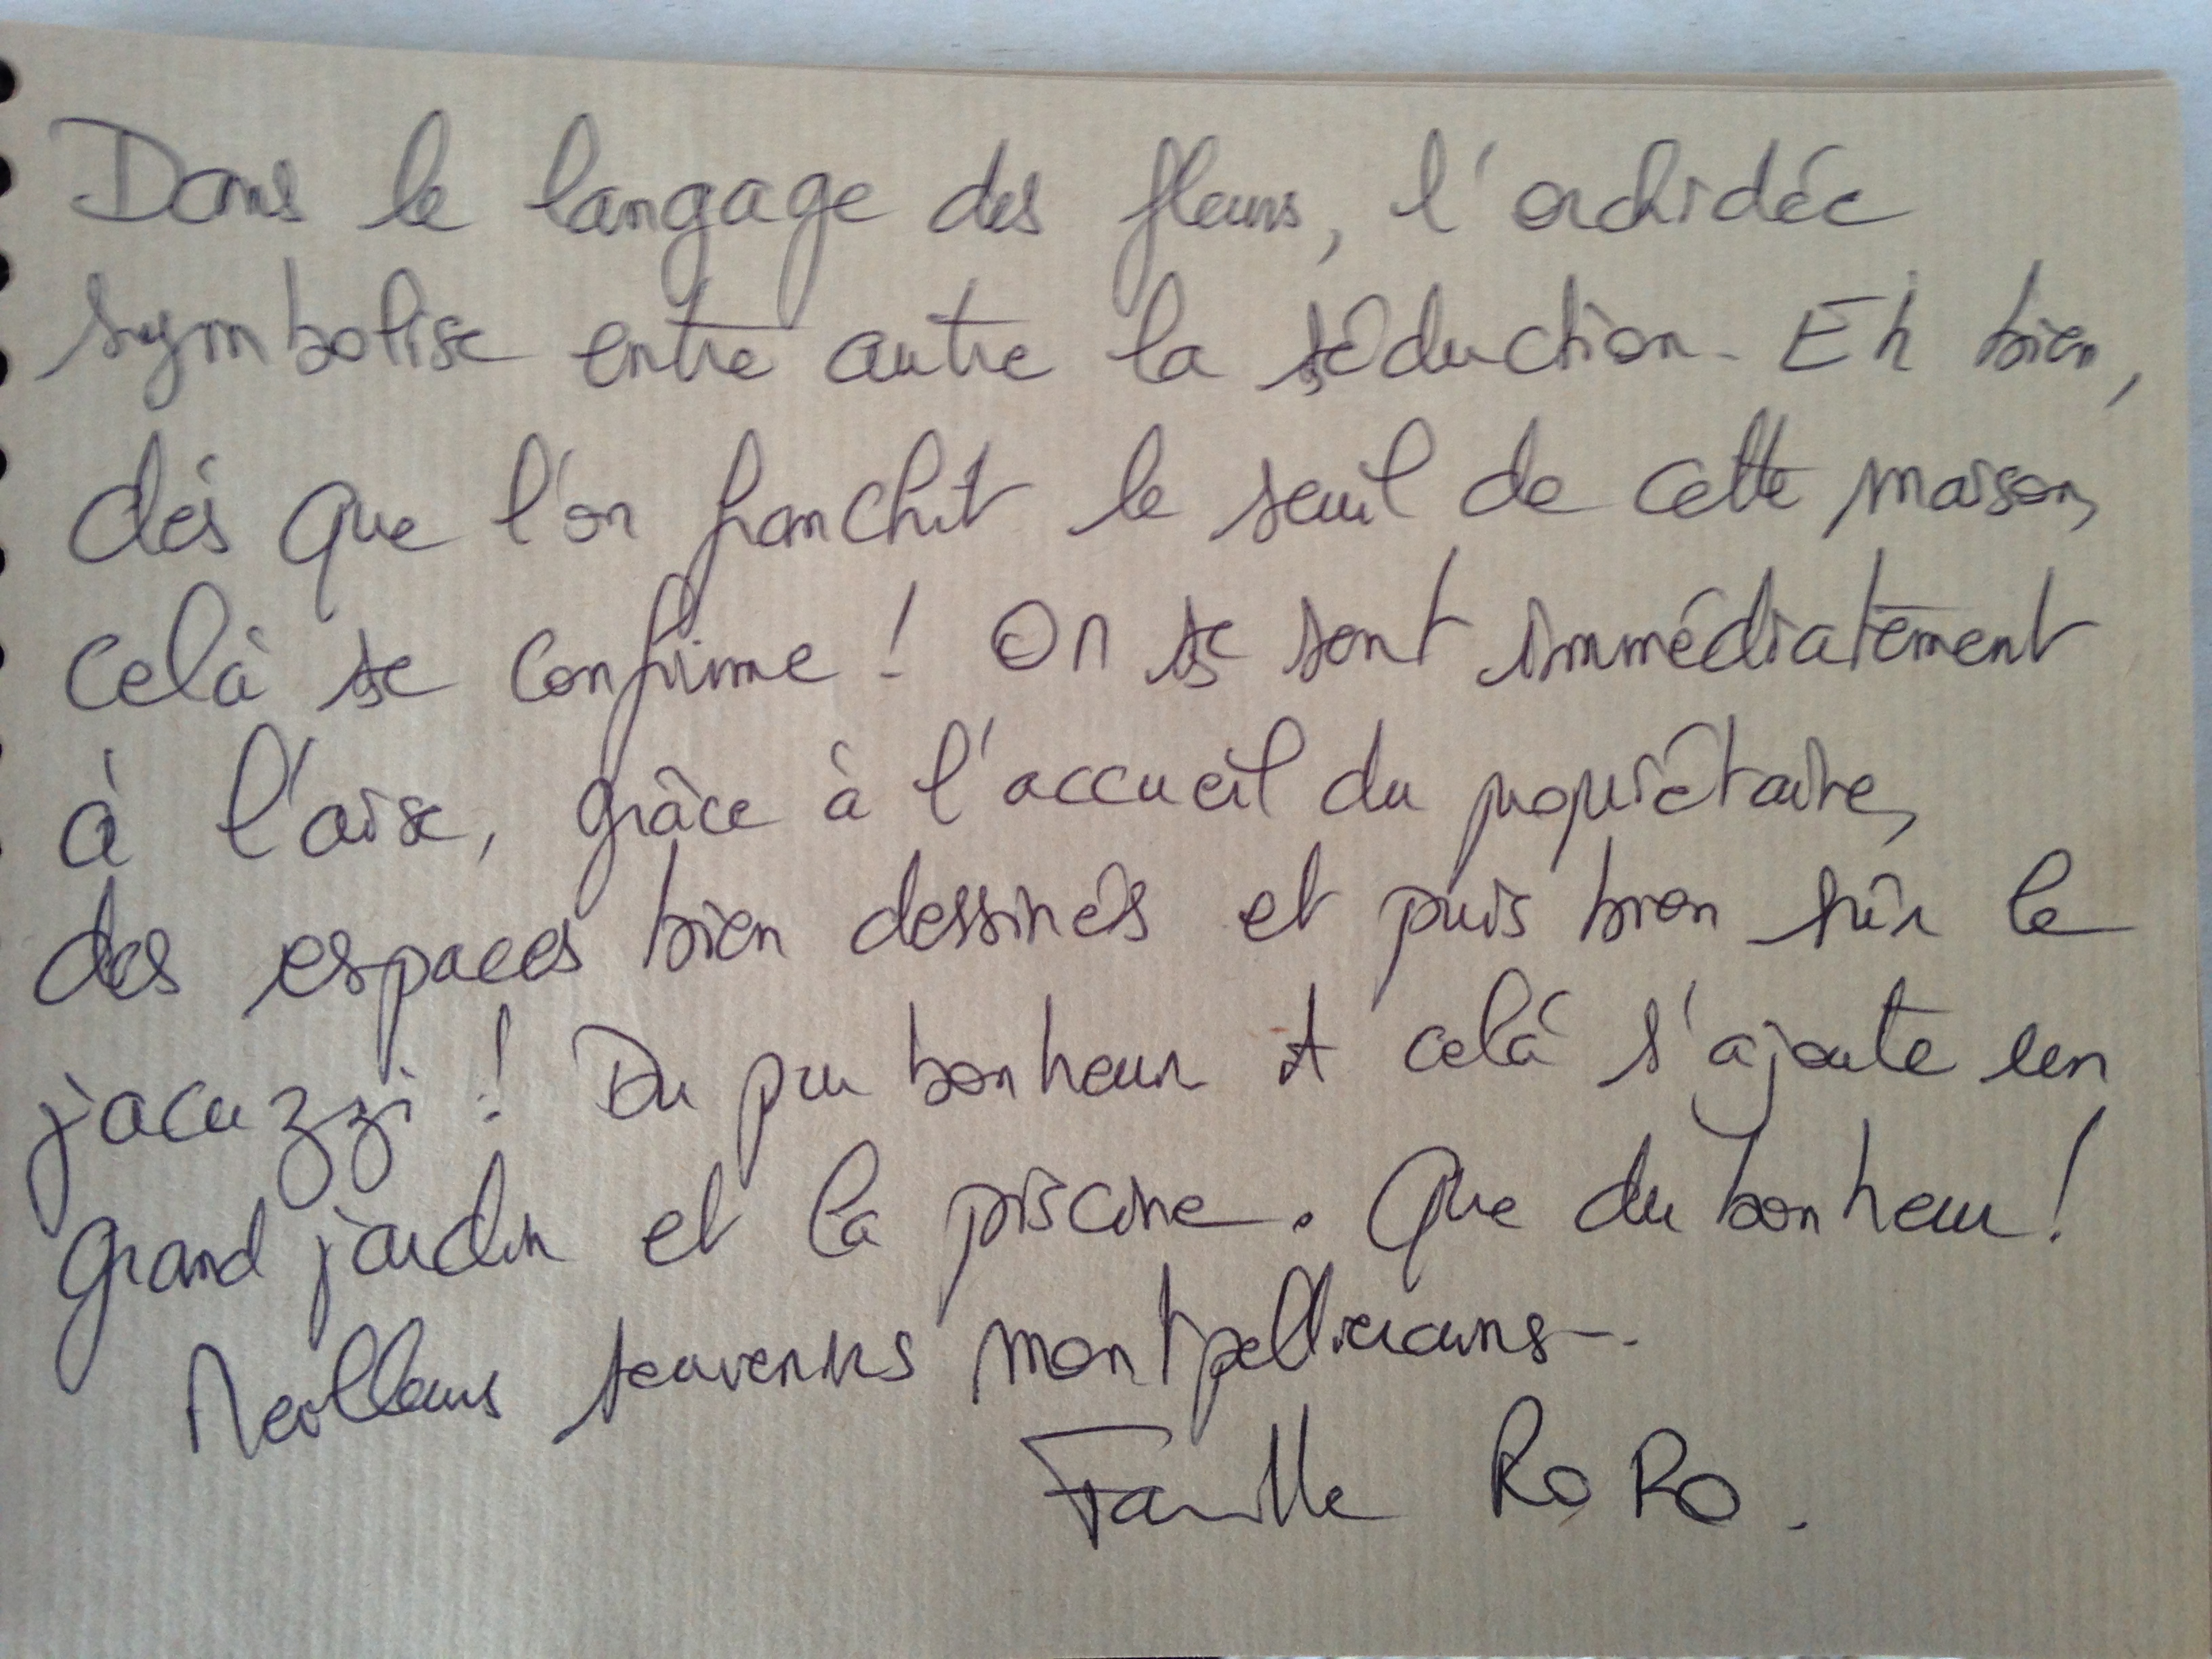 Dans le langage des fleurs, l'orchidée
symbolise entre autre la séduction. Eh bien,
dés que l'on franchit le seuil de cette maison,
celà se confirme ! On se sent immédiatement
à l'aise, grâce à l'accueil du propriétaire,
des espaces bien dessinés et puis bien sûr le
jacuzzi ! Du pur bonheur A celà s'ajoute un
grand jardin et la piscine. Que du bonheur !
Meilleurs souvenirs montpellierains-.
Famille RoRo.